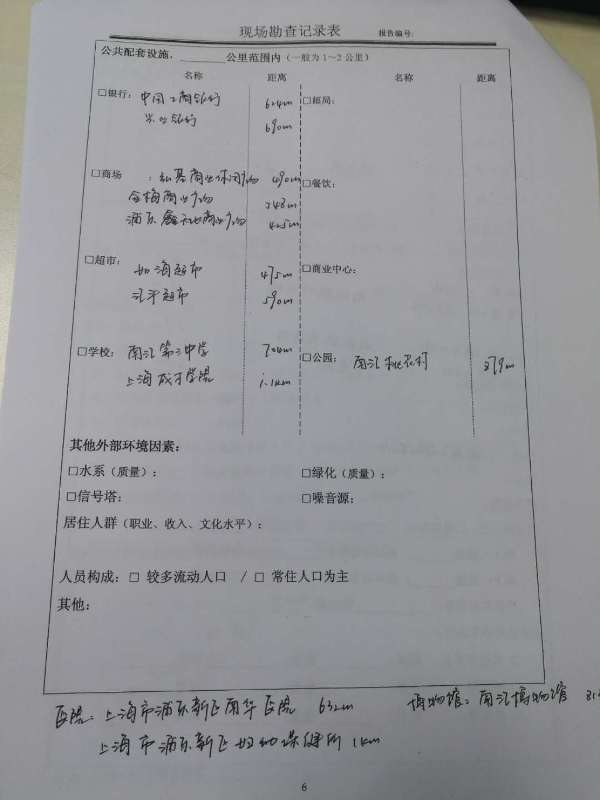 现场勘查记录表 报告编号:
公共配套设施, ______公里范围内（一般为1~2公里）
名称 距离 名称 距离
□银行: 中国工商银行 624m □邮局:
农业银行 690m
□商场 : 商业休闲广场 490m □餐饮:
商业广场 348m
浦东 商业广场 425m
□超市: 世海超市 475m □商业中心:
超市 590m
□学校: 南汇第二中学 704m □公园: 南汇桃花村 379m
上海 学院 1.1km
其他外部环境因素:
□水系（质量）: □绿化（质量）:
□信号塔: □噪音源:
居住人群（职业、收入、文化水平）:
人员构成: □ 较多流动人口 / □ 常住人口为主
其他:
医院: 上海市浦东新区南华医院 632m 博物馆: 南汇博物馆
上海市浦东新区妇幼保健所 1km
6